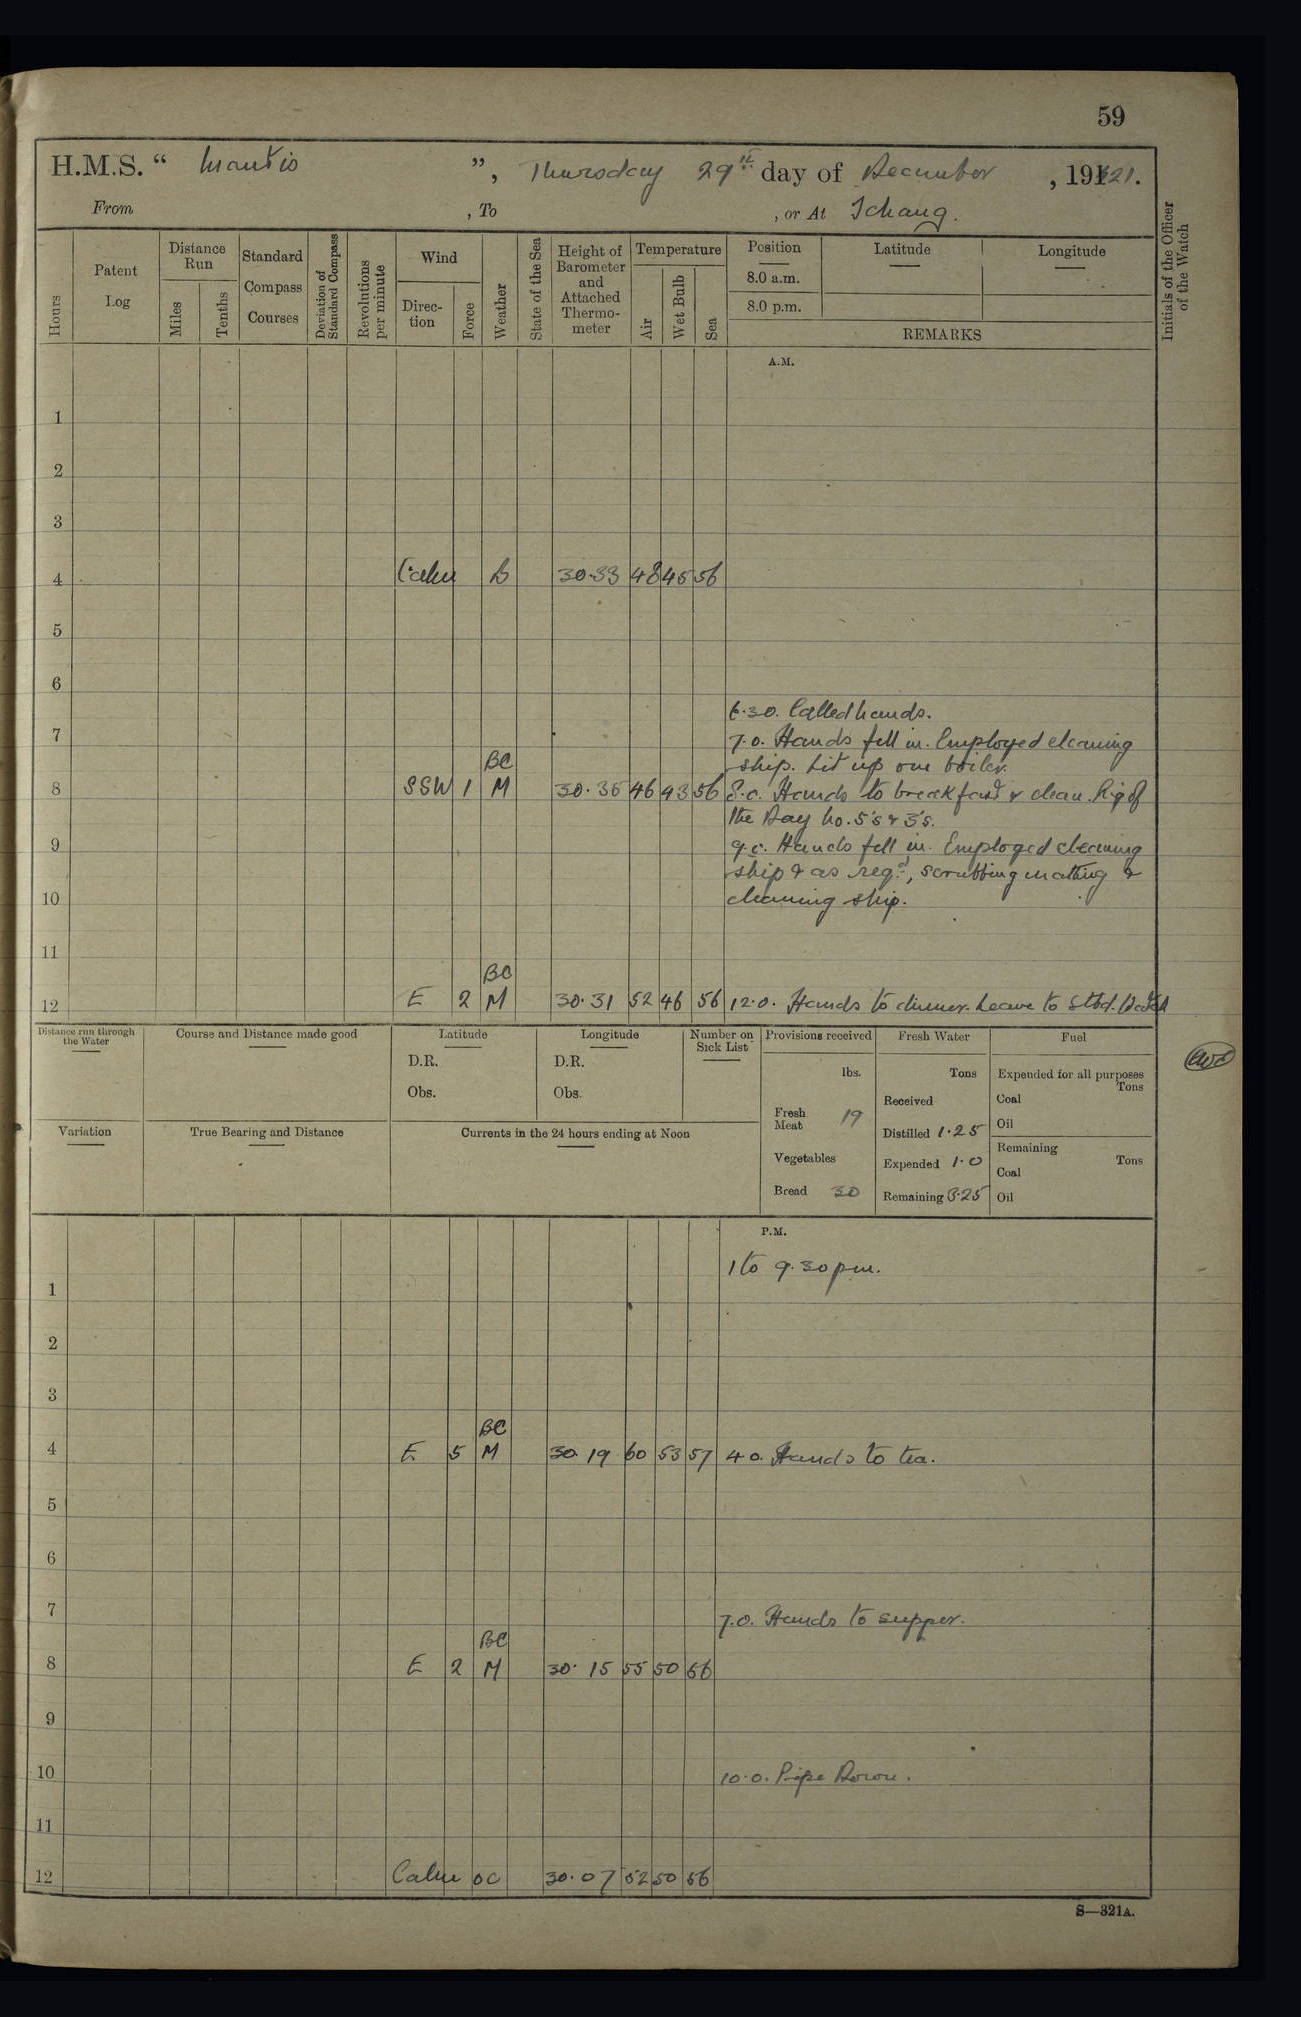 59
H.M.S. “ Mantis ”, Thursday 29th day of December, 1921.
From , To , or At Ichang.
Hours
Patent Log
Distance Run
Miles
Tenths
Standard Compass Courses
Deviation of Standard Compass
Revolutions per minute
Wind
Direction
Force
Weather
State of the Sea
Height of Barometer and Attached Thermometer
Temperature
Air
Wet Bulb
Sea
Position
8.0 a.m.
8.0 p.m.
Latitude
Longitude
REMARKS
Initials of the Officer of the Watch
A.M.
1
2
3
4 Calm B 30.33 48 45 56
5
6
6.30. Called hands.
7 7.0. Hands fell in. Employed cleaning
BC ship. Lit up one boiler.
8 SSW 1 M 30.35 46 43 56 8.0. Hands to breakfast & clean. Rig of
the Day No. 5's & 3's.
9 9.0. Hands fell in. Employed cleaning
ship & as reqd, scrubbing matting &
10 cleaning ship.
11
BC
12 E 2 M 30.31 52 46 56 12.0. Hands to dinner. Leave to Stbd. Watch
Distance run through the Water
Course and Distance made good
Latitude
D.R.
Obs.
Longitude
D.R.
Obs.
Number on Sick List
Provisions received
lbs.
Fresh Meat 19
Vegetables
Bread 30
Fresh Water
Tons
Received
Distilled 1.25
Expended 1.0
Remaining 8.25
Fuel
Expended for all purposes
Tons
Coal
Oil
Remaining
Tons
Coal
Oil
Variation
True Bearing and Distance
Currents in the 24 hours ending at Noon
P.M.
1 to 9.30 pm.
1
2
3
BC
4 E 5 M 30.19 60 53 57 4.0. Hands to tea.
5
6
7 7.0. Hands to supper.
BC
8 E 2 M 30.15 55 50 56
9
10 10.0. Pipe Down.
11
12 Calm OC 30.07 52 50 56
S—321A.